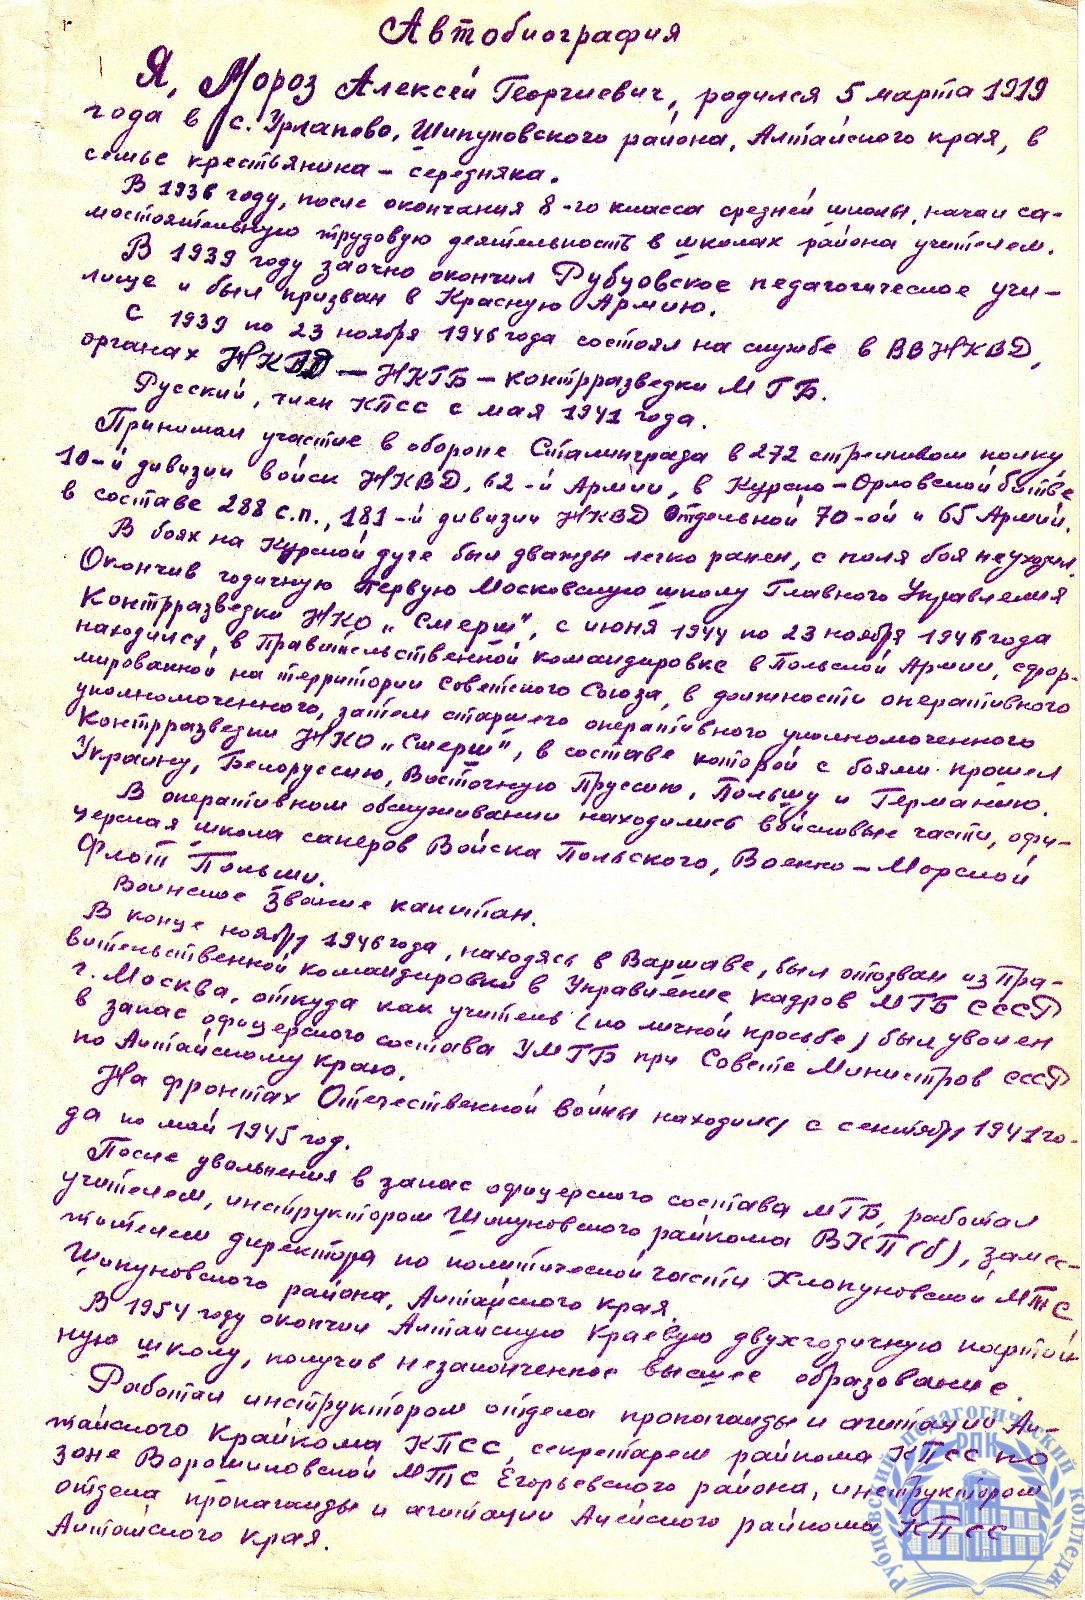 Автобиография
Я, Мороз Алексей Георгиевич, родился 5 марта 1919
года в с. Урлапово, Шипуновского района, Алтайского края, в
семье крестьянина - середняка.
В 1936 году, после окончания 8-го класса средней школы, начал са-
мостоятельную трудовую деятельность в школах района учителем.
В 1939 году заочно окончил Рубцовское педагогическое учи-
лище и был призван в Красную Армию.
С 1939 по 23 ноября 1946 года состоял на службе в ВВ НКВД,
органах НКВД — НКГБ - контрразведки МГБ.
Русский, член КПСС с мая 1941 года.
Принимал участие в обороне Сталинграда в 272 стрелковом полку
10-й дивизии войск НКВД, 62-й Армии, в Курско-Орловской битве
в составе 288 с.п., 181-й дивизии НКВД Отдельной 70-ой и 65 Армий.
В боях на Курской дуге был дважды легко ранен, с поля боя не уходил.
Окончив годичную Первую Московскую школу Главного Управления
Контрразведки НКО „Смерш", с июня 1944 по 23 ноября 1946 года
находился, в Правительственной командировке в Польской Армии, сфор-
мированной на территории Советского Союза, в должности оперативного
уполномоченного, затем старшего оперативного уполномоченного
Контрразведки НКО „Смерш", в составе которой с боями прошел
Украину, Белоруссию, Восточную Пруссию, Польшу и Германию.
В оперативном обслуживании находились войсковые части, офи-
церская школа саперов Войска Польского, Военно-Морской
Флот Польши.
Воинское звание капитан.
В конце ноября 1946 года, находясь в Варшаве, был отозван из Пра-
вительственной командировки в Управление кадров МГБ СССР
г. Москва, откуда как учитель (по личной просьбе) был уволен
в запас офицерского состава УМГБ при Совете Министров СССР
по Алтайскому краю.
На фронтах Отечественной войны находился с сентября 1941 го-
да по май 1945 год.
После увольнения в запас офицерского состава МГБ, работал
учителем, инструктором Шипуновского райкома ВКП(б), замес-
тителем директора по политической части Хлопуновской МТС
Шипуновского района, Алтайского края.
В 1954 году окончил Алтайскую Краевую двухгодичную партий-
ную школу, получив незаконченное высшее образование.
Работал инструктором отдела пропаганды и агитации Ал-
тайского крайкома КПСС, секретарем райкома КПСС по
зоне Ворошиловской МТС Егорьевского района, инструктором
отдела пропаганды и агитации Алейского райкома КПСС
Алтайского края.
Рубцовский педагогический колледж
РПК